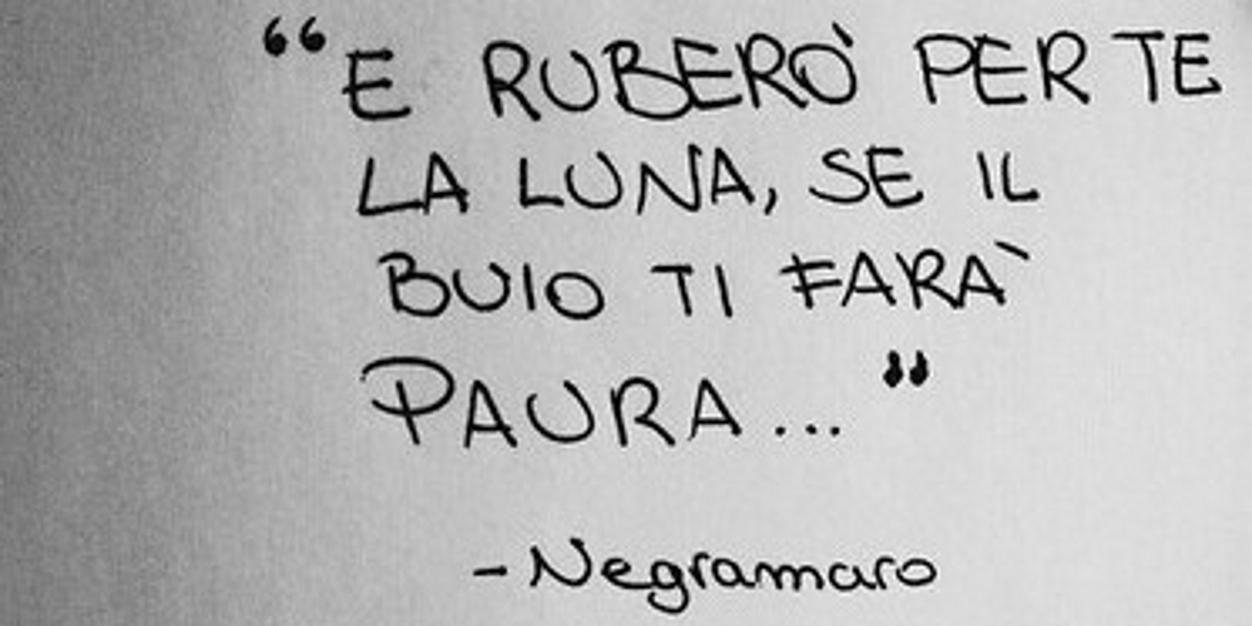 “E RUBERÒ PER TE
LA LUNA, SE IL
BUIO TI FARÀ
PAURA...”
-Negramaro